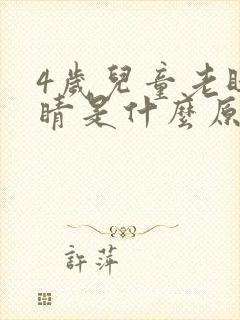 4歲兒童老
睛是什麼原
許萍